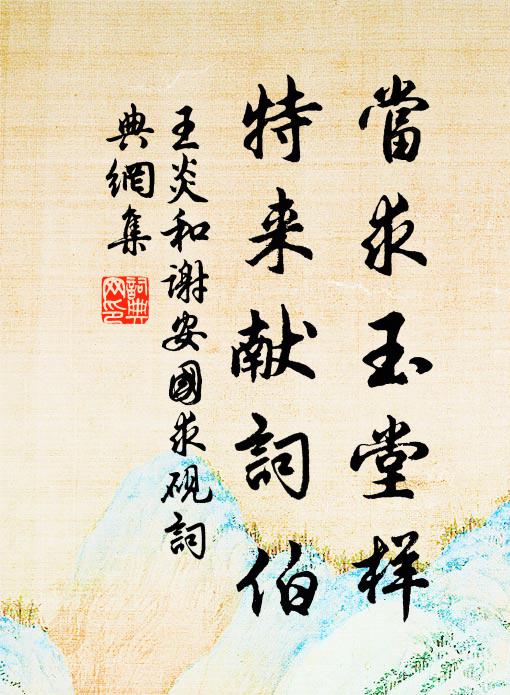 當求玉堂样
特来献詞伯
王炎和谢安國求砚詞
典網集
詞典
网印